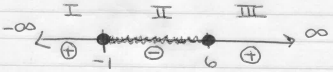 I II III
-∞ ∞
+ - +
-1 6